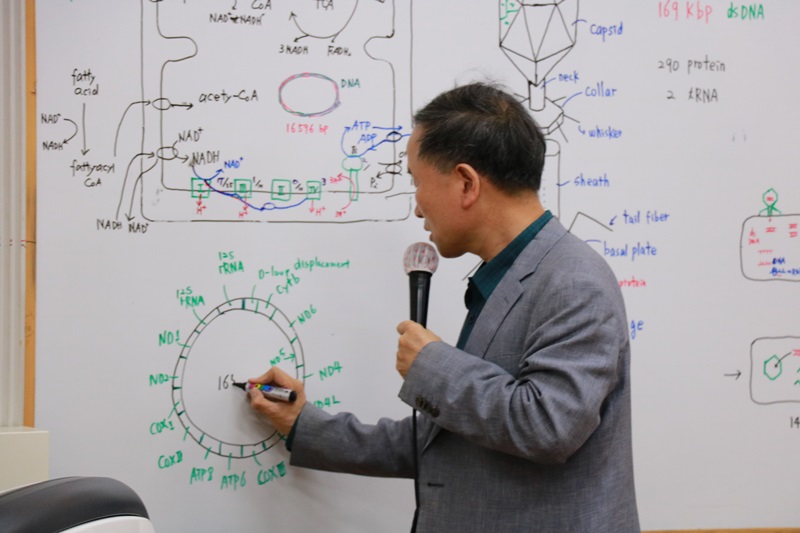 CoA
TCA
NAD⁺
NADH
3NADH
FADH₂
fatty
acid
NAD⁺
NADH
fattyacyl
CoA
NADH
NAD⁺
acety-CoA
NAD⁺
NADH
NAD⁺
DNA
16596 bp
ATP
ADP
Pi
I
III
IV
H⁺
H⁺
H⁺
H⁺
capsid
neck
collar
whisker
sheath
tail fiber
basal plate
169 kbp dsDNA
290 protein
2 tRNA
12S
rRNA
D-loop displacement
Cytb
ND6
ND5
ND4
ND4L
COX III
ATP6
ATP8
COX II
COX I
ND2
ND1
12S
rRNA
16
14